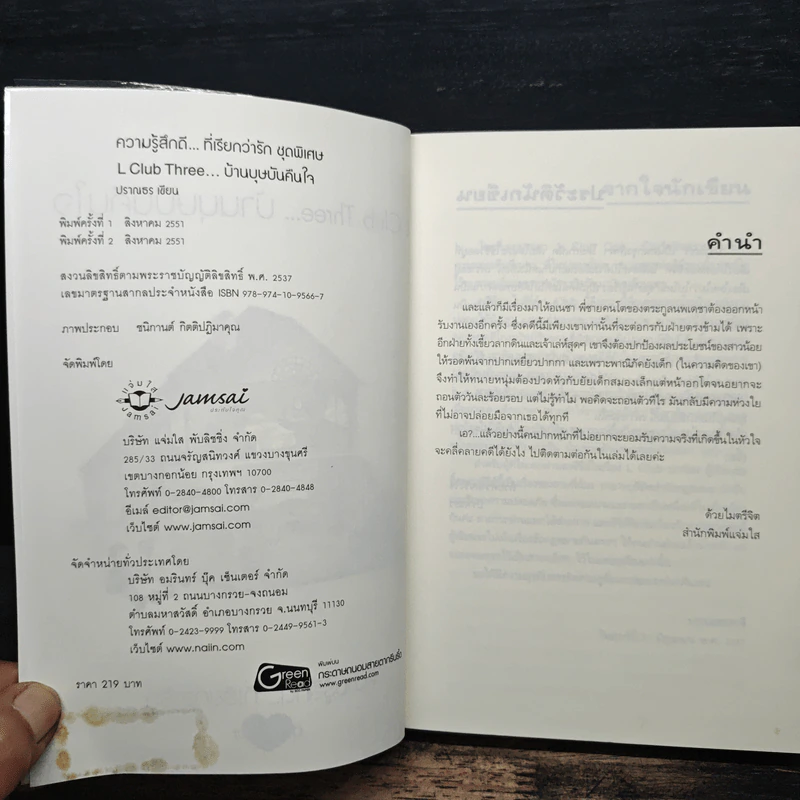 ความรู้สึกดี... ที่เรียกว่ารัก ชุดพิเศษ
L Club Three... บ้านบุษบันคืนใจ
ปราณธร เขียน
พิมพ์ครั้งที่ 1 สิงหาคม 2551
พิมพ์ครั้งที่ 2 สิงหาคม 2551
สงวนลิขสิทธิ์ตามพระราชบัญญัติลิขสิทธิ์ พ.ศ. 2537
เลขมาตรฐานสากลประจำหนังสือ ISBN 978-974-10-9566-7
ภาพประกอบ ชนิกานต์ กิตติปฏิมาคุณ
จัดพิมพ์โดย
แจ่มใส
Jamsai
Jamsai
บริษัท แจ่มใส พับลิชชิ่ง จำกัด
285/33 ถนนจรัญสนิทวงศ์ แขวงบางขุนศรี
เขตบางกอกน้อย กรุงเทพฯ 10700
โทรศัพท์ 0-2840-4800 โทรสาร 0-2840-4848
อีเมล์ editor@jamsai.com
เว็บไซต์ www.jamsai.com
จัดจำหน่ายทั่วประเทศโดย
บริษัท อมรินทร์ บุ๊ค เซ็นเตอร์ จำกัด
108 หมู่ที่ 2 ถนนบางกรวย-จงถนอม
ตำบลมหาสวัสดิ์ อำเภอบางกรวย จ.นนทบุรี 11130
โทรศัพท์ 0-2423-9999 โทรสาร 0-2449-9561-3
เว็บไซต์ www.naiin.com
Green Read
พิมพ์บน
กระดาษถนอมสายตากรีนรี้ด
www.greenread.com
ราคา 219 บาท
คำนำ
และแล้วก็มีเรื่องมาให้อเนชา พี่ชายคนโตของตระกูลนพเดชาต้องออกหน้า
รับงานเองอีกครั้ง ซึ่งคดีนี้มีเพียงเขาเท่านั้นที่จะต่อกรกับฝ่ายตรงข้ามได้ เพราะ
อีกฝ่ายทั้งเขี้ยวลากดินและเจ้าเล่ห์สุดๆ เขาจึงต้องปกป้องผลประโยชน์ของสาวน้อย
ให้รอดพ้นจากปากเหยี่ยวปากกา และเพราะพาณิภัคยังเด็ก (ในความคิดของเขา)
จึงทำให้ทนายหนุ่มต้องปวดหัวกับยัยเด็กสมองเล็กแต่หน้าอกโตจนอยากจะ
ถอนตัววันละร้อยรอบ แต่ไม่รู้ทำไม พอคิดจะถอนตัวทีไร มันกลับมีความห่วงใย
ที่ไม่อาจปล่อยมือจากเธอได้ทุกที
เอ?...แล้วอย่างนี้คนปากหนักที่ไม่อยากจะยอมรับความจริงที่เกิดขึ้นในหัวใจ
จะคลี่คลายคดีได้ยังไง ไปติดตามต่อกันในเล่มได้เลยค่ะ
ด้วยไมตรีจิต
สำนักพิมพ์แจ่มใส